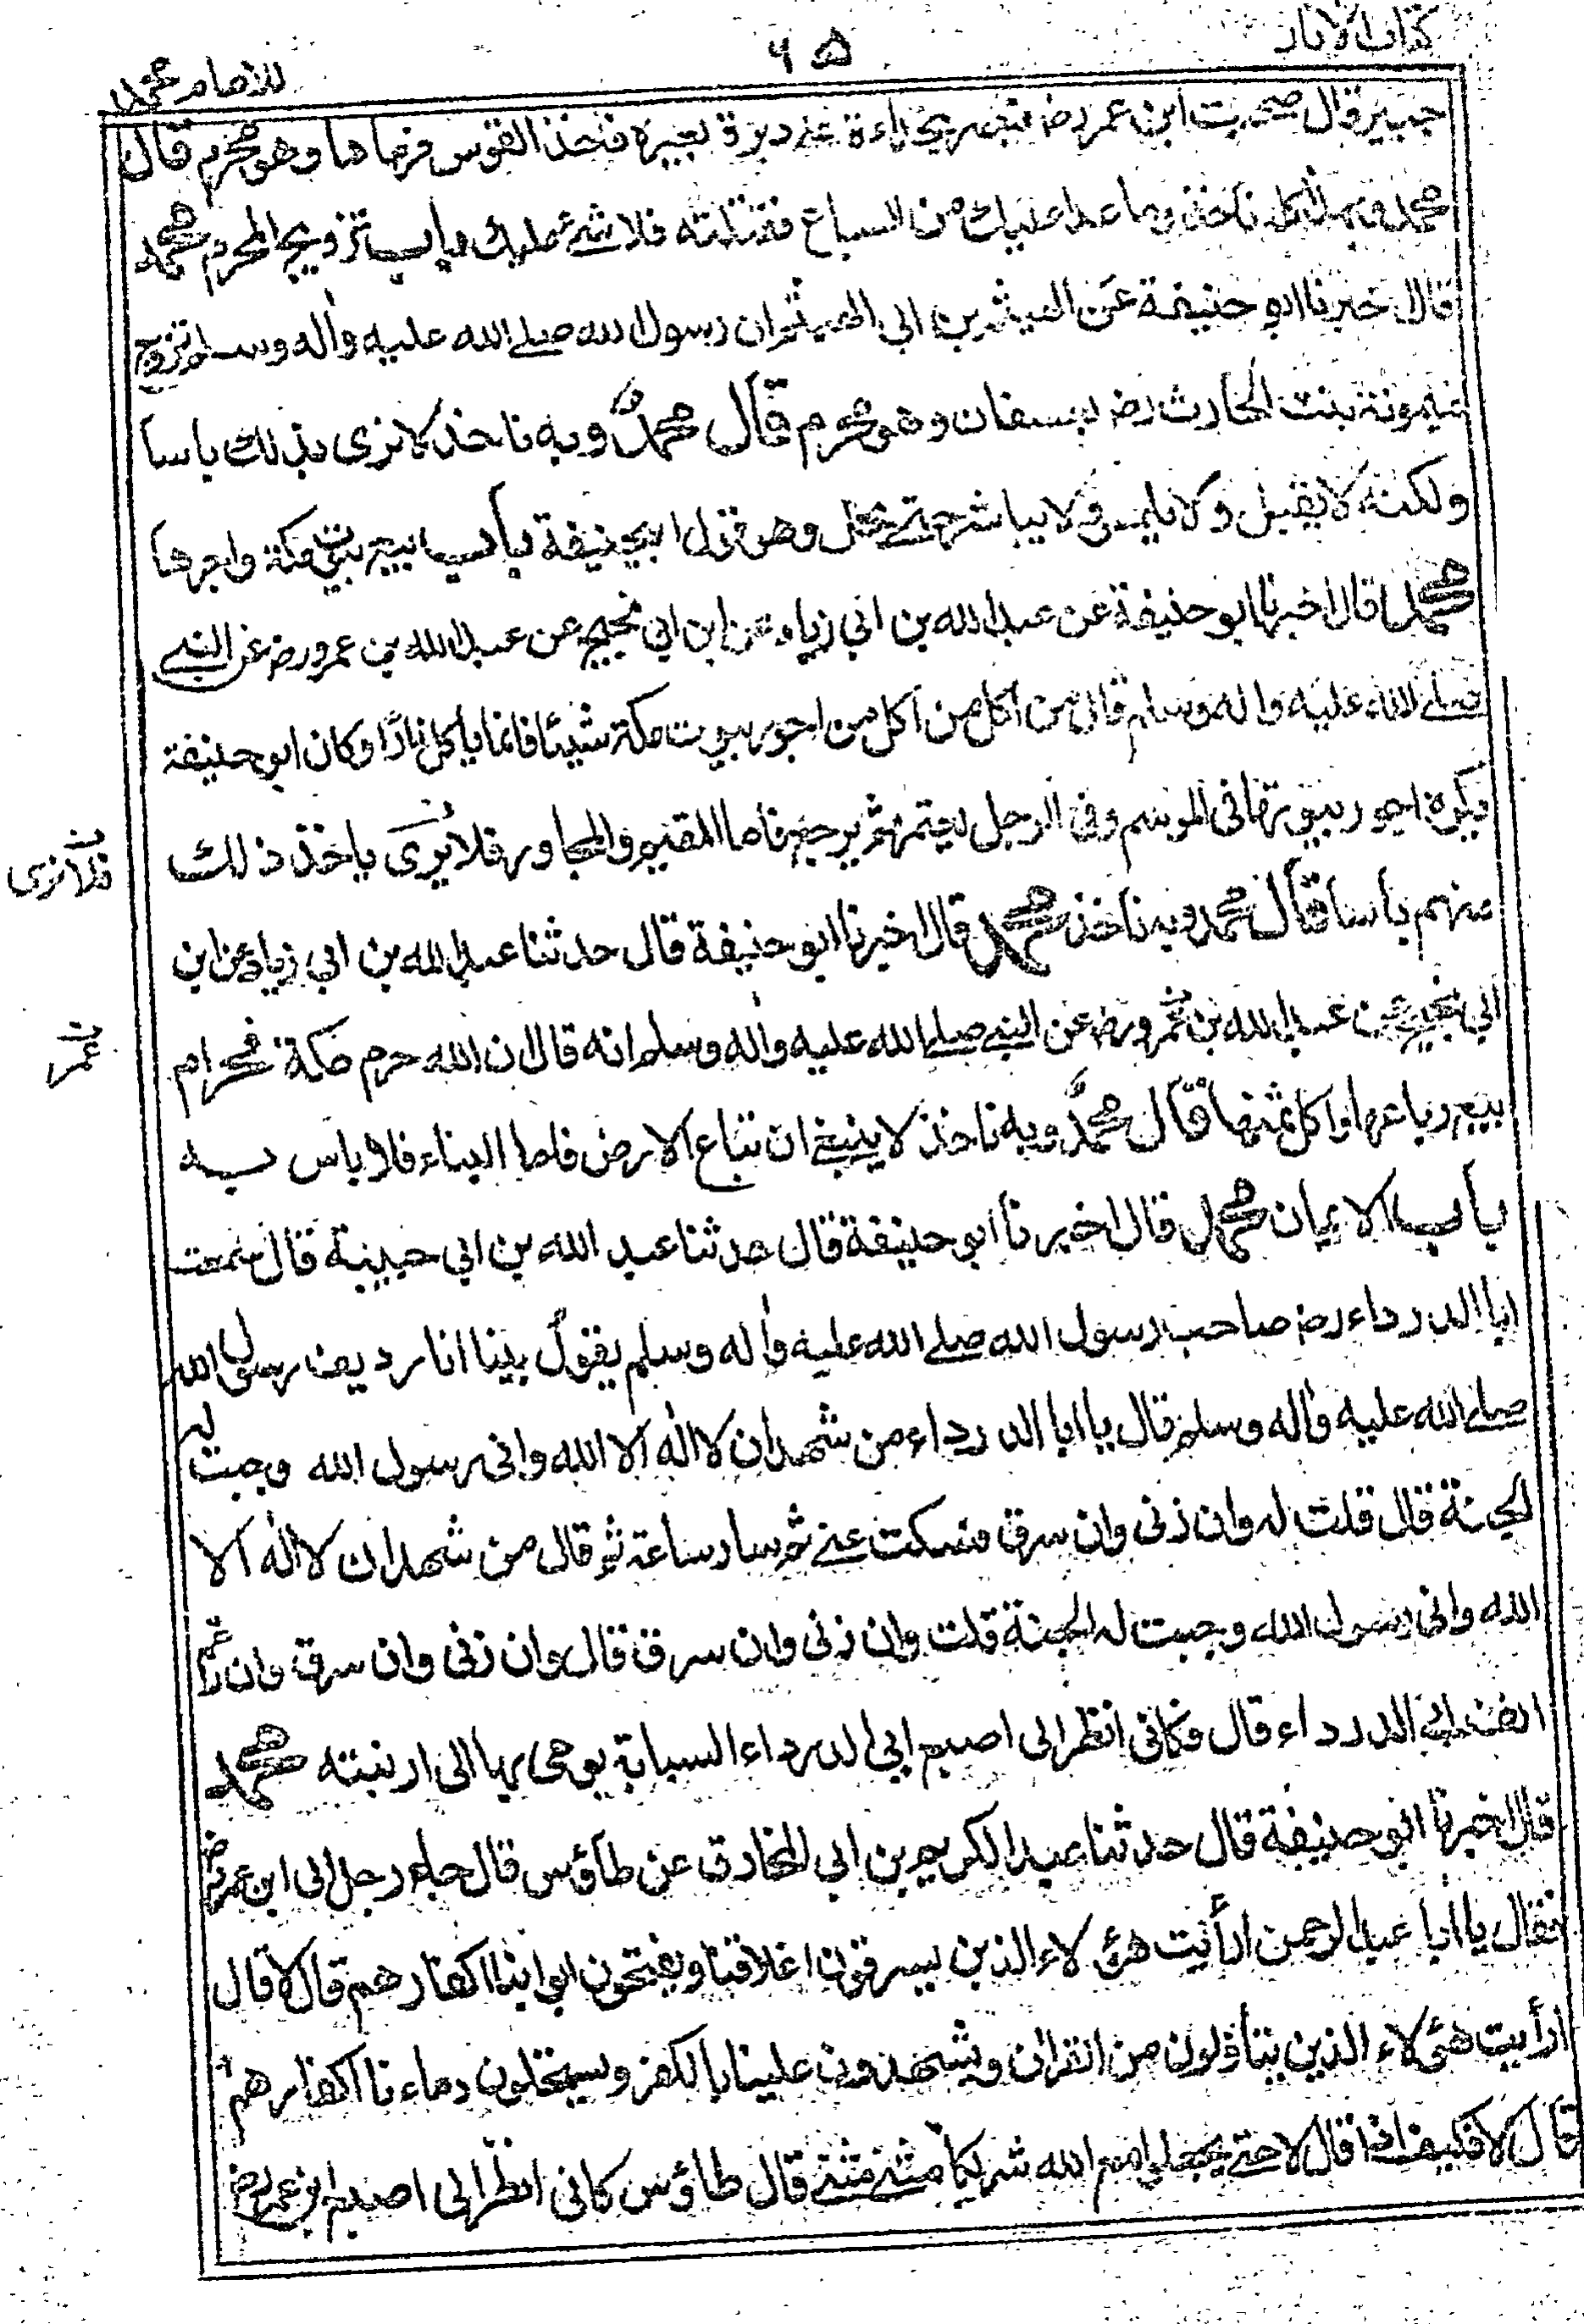 كتاب الاثار
٦٥
للامام محمد
جبير قال صحبت ابن عمر رض فبصر بحداءة على دبرة بعيره فاخذ القوس فرماها وهو محرم قال
محمد وبهذا كله ناخذ وما عدا عليك من السباع فقتلته فلا شئ عليك باب تزويج المحرم محمد
قال اخبرنا ابو حنيفة عن الهيثم بن ابى الهيثم ان رسول الله صلى الله عليه واٰله وسلم تزوج
ميمونة بنت الحارث رض بعسفان وهو محرم قال محمد وبه ناخذ لا نرى بذلك باسا
ولكنه لا يقبل ولا يلمس ولا يباشر حتى يحل وهو قول ابيحنيفة باب بيع بيوت مكة واجرها
محمد قال اخبرنا ابو حنيفة عن عبد الله بن ابى زياد عن ابن ابى نجيح عن عبد الله بن عمرو رض عن النبى
صلى الله عليه واله وسلم قال من اكل من اكل من اجور بيوت مكة شيئا فانما ياكل نارًا وكان ابو حنيفة
يكره اجور بيوتها فى الموسم وفى الرجل يعتمر ثم يرجع فاما المقيم والمجاور فلا يرى باخذ ذلك
فلا نرى
منهم باسا قال محمد وبه ناخذ محمد قال اخبرنا ابو حنيفة قال حدثنا عبد الله بن ابى زياد عن ابن
ابى نجيح عن عبد الله بن عمرو رض عن النبى صلى الله عليه واٰله وسلم انه قال ان الله حرم مكة فحرام
عمر
بيع رباعها واكل ثمنها قال محمد وبه ناخذ لا ينبغى ان تباع الارض فاما البناء فلا باس به
باب الايمان محمد قال اخبرنا ابو حنيفة قال حدثنا عبد الله بن ابى حبيبة قال سمعت
ابا الدرداء رض صاحب رسول الله صلى الله عليه واٰله وسلم يقول بينا انا رديف رسول الله
صلى الله عليه واٰله وسلم قال يا ابا الدرداء من شهد ان لا اله الا الله وانى رسول الله وجبت له
الجنة قال قلت له وان زنى وان سرق فسكت عنى ثم سار ساعة ثم قال من شهد ان لا اله الا
الله وانى رسول الله وجبت له الجنة قلت وان زنى وان سرق قال وان زنى وان سرق وان رغم
انف ابى الدرداء قال فكانى انظر الى اصبع ابى الدرداء السبابة يومى بها الى ارنبته محمد
قال اخبرنا ابو حنيفة قال حدثنا عبد الكريم بن ابى المخارق عن طاؤس قال جاء رجل الى ابن عمر رض
فقال يا ابا عبد الرحمن ارأيت هؤلاء الذين يسرقون اغلاقنا ويفتحون ابوابنا اكفار هم قال لا قال
ارأيت هؤلاء الذين يتأولون من القران ويشهدون علينا بالكفر ويستحلون دماءنا اكفار هم
قال لا فكيف اذا قال لا حتى يجعل مع الله شريكا مثنى مثنى قال طاؤس كانى انظر الى اصبع ابن عمر رض